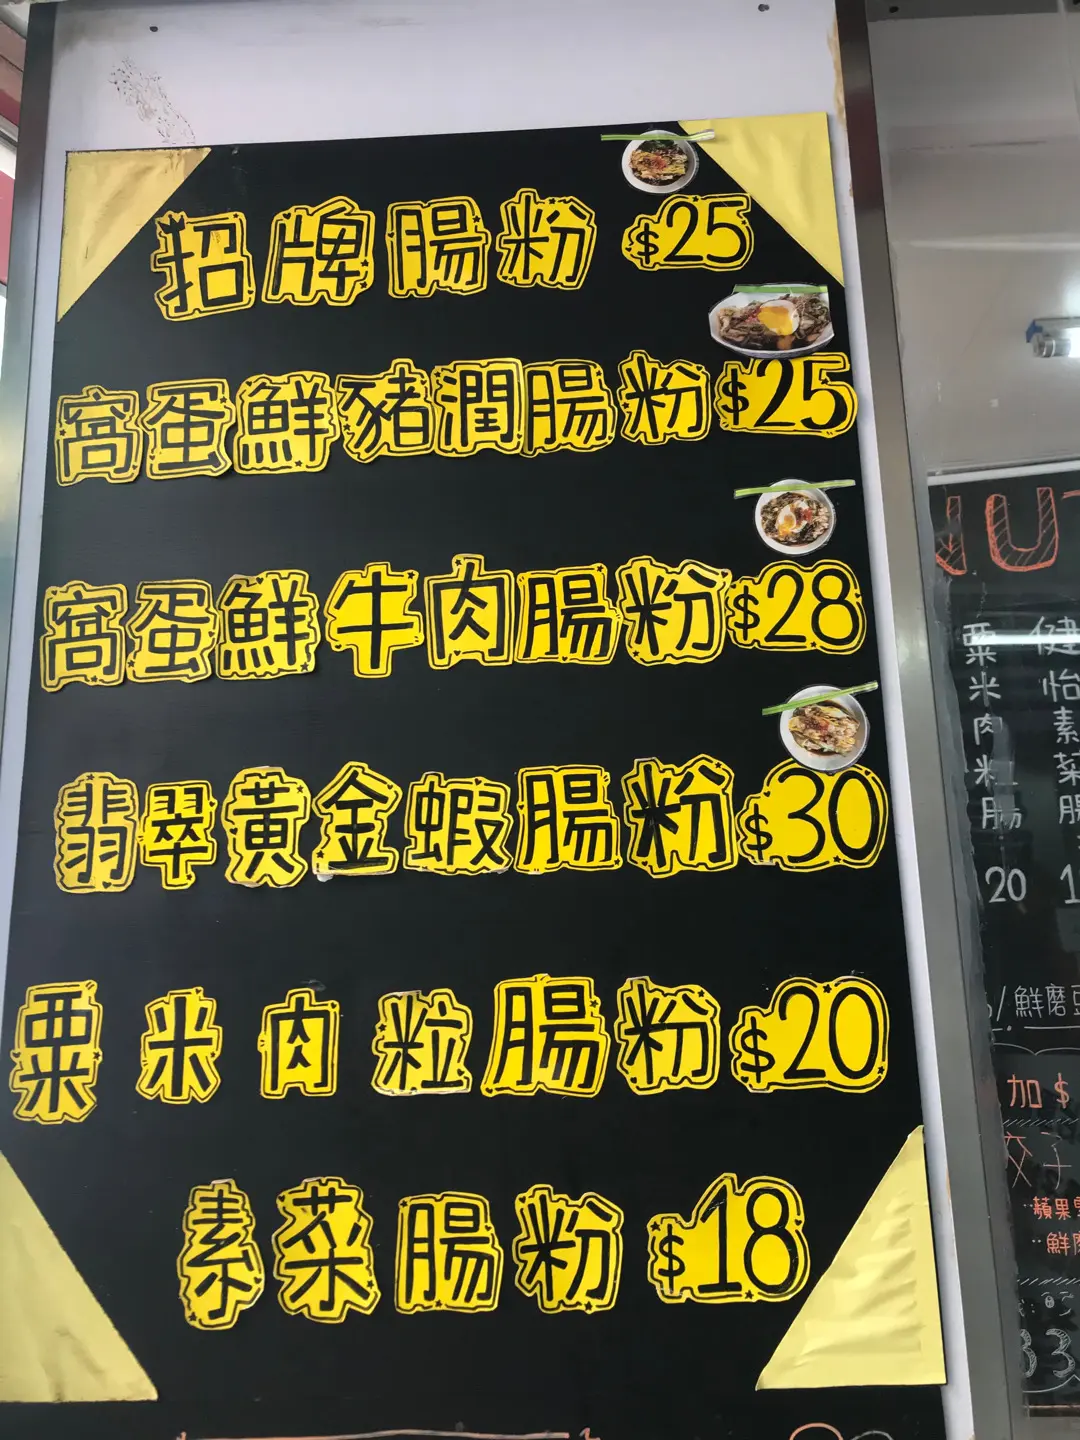 招牌腸粉 $25
窩蛋鮮豬潤腸粉 $25
窩蛋鮮牛肉腸粉 $28
翡翠黃金蝦腸粉 $30
粟米肉粒腸粉 $20
素菜腸粉 $18
粟米肉粒腸
20
健怡素菜腸
鮮磨
加$
蘋果
鮮